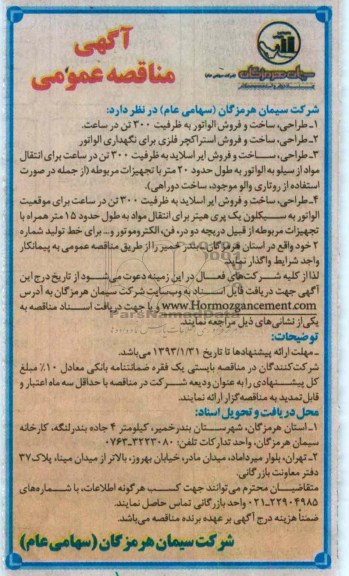 آگهی
مناقصه عمومی
شرکت سیمان هرمزگان (سهامی عام) در نظر دارد:
۱-طراحی، ساخت و فروش الواتور به ظرفیت ۳۰۰ تن در ساعت.
۲-طراحی، ساخت و فروش استراکچر فلزی برای نگهداری الواتور
۳-طراحی، ساخت و فروش ایر اسلاید به ظرفیت ۳۰۰ تن در ساعت برای انتقال
مواد از سیلو به الواتور به طول حدود ۲۰ متر با تجهیزات مربوطه (از جمله در صورت
استفاده از روتاری والو موجود، ساخت دوراهی).
۴-طراحی، ساخت و فروش ایر اسلاید به ظرفیت ۳۰۰ تن در ساعت برای موقعیت
الواتور به سیکلون یک پری هیتر برای انتقال مواد به طول حدود ۱۵ متر همراه با
تجهیزات مربوطه از قبیل دریچه دو در، فن، الکتروموتور و... برای خط تولید شماره
۲ خود واقع در استان هرمزگان-بندر خمیر را از طریق مناقصه عمومی به پیمانکار
واجد شرایط واگذار نماید.
لذا از کلیه شرکت‌های فعال در این زمینه دعوت می‌شود از تاریخ درج این
آگهی جهت دریافت فایل اسناد به وب‌سایت شرکت سیمان هرمزگان به آدرس
www.Hormozgancement.com و یا جهت دریافت اسناد مناقصه به
یکی از نشانی‌های ذیل مراجعه نمایند.
توضیحات:
-مهلت ارائه پیشنهادها تا تاریخ ۱۳۹۳/۱/۳۱ می‌باشد.
شرکت‌کنندگان در مناقصه بایستی یک فقره ضمانتنامه بانکی معادل ۱۰٪ مبلغ
کل پیشنهادی را به عنوان ودیعه شرکت در مناقصه با حداقل سه ماه اعتبار و
قابل تمدید به مناقصه‌گزار ارائه نمایند.
محل دریافت و تحویل اسناد:
۱-استان هرمزگان، شهرستان بندرخمیر، کیلومتر ۴ جاده بندرلنگه، کارخانه
سیمان هرمزگان، واحد تدارکات تلفن: ۳۲۲۳۰۸۰-۰۷۶۳
۲-تهران، بلوار میرداماد، میدان مادر، خیابان بهروز، بالاتر از میدان مینا، پلاک ۳۷
دفتر معاونت بازرگانی.
متقاضیان محترم می‌توانند جهت کسب هرگونه اطلاعات، با شماره‌های
۲۲۹۰۴۹۸۵-۰۲۱ واحد بازرگانی تماس حاصل نمایند.
ضمناً هزینه درج آگهی بر عهده برنده مناقصه می‌باشد.
شرکت سیمان هرمزگان (سهامی عام)